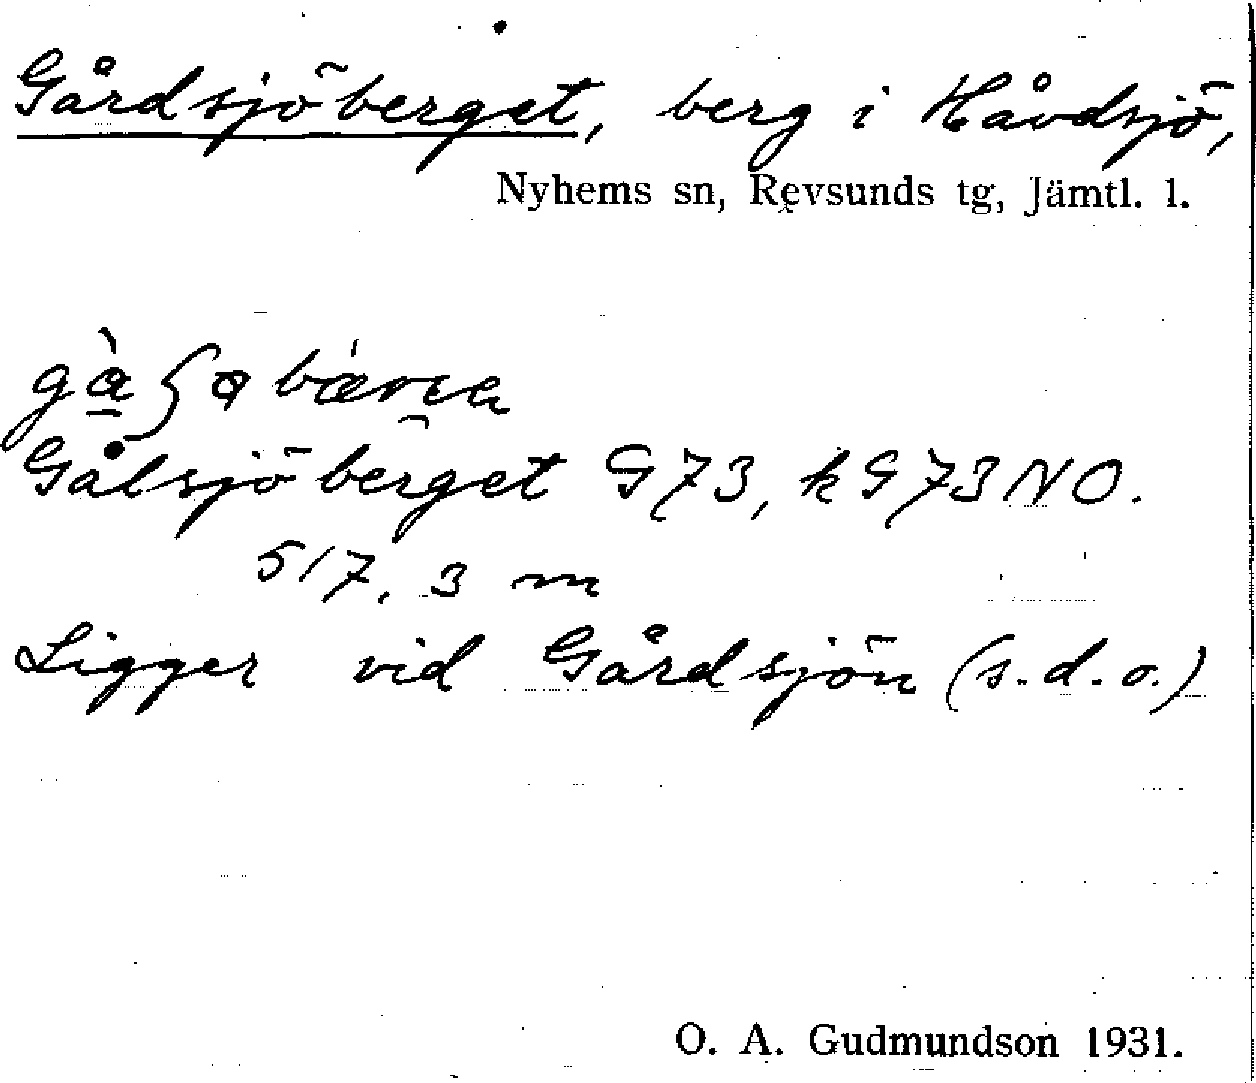 Gårdsjöberget, berg i Håvdsjö,
Nyhems sn, Revsunds tg, Jämtl. l.
Gålsjöberget G73, kG73NO.
517,3 m
Ligger vid Gårdsjön (s.d.o.)
O. A. Gudmundson 1931.